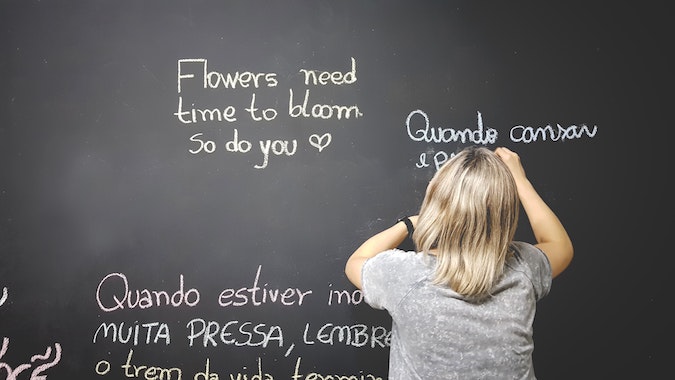 Flowers need
time to bloom.
So do you ♡
Quando cansar
e
Quando estiver
MUITA PRESSA, LEMBRE
o trem da vida
Você